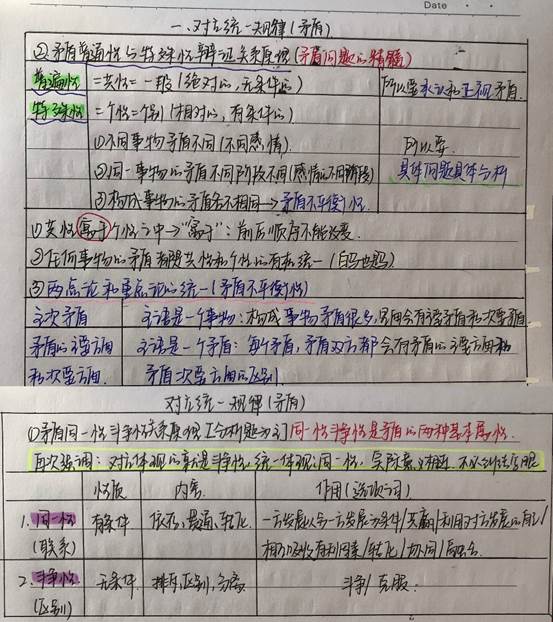 Date
一、对立统一规律(矛盾)
②矛盾普遍性与特殊性辩证关系原理(矛盾问题的精髓)
普遍性 =共性=一般(绝对的,无条件的) 所以要承认和正视矛盾.
特殊性 =个性=个别(相对的,有条件的)
①不同事物矛盾不同(不同感情). 所以要
②同一事物的矛盾不同阶段不同(感情的不同阶段) 具体问题具体分析
③构成事物的矛盾各不相同→矛盾不平衡性.
①共性寓于个性之中→"寓于":前后顺序不能改变.
②任何事物的矛盾都是共性和个性的有机统一(白马也马)
③两点论和重点论的统一(矛盾不平衡性)
主次矛盾 主语是一个事物:构成事物矛盾很多,里面会有主要矛盾和次要矛盾
矛盾的主要方面 主语是一个矛盾:每个矛盾,矛盾双方都会有矛盾的主要方面和
和次要方面. 矛盾次要方面的区别
对立统一规律(矛盾)
①矛盾同一性斗争性关系原理[分析题为主]同一性斗争性是矛盾的两种基本属性.
再次强调:对立体现的就是斗争性,统一体现同一性,
性质 内容 作用(选项词)
1.同一性 有条件 依存,贯通,转化 一方发展以另一方发展为条件/共赢/利用对方发展的自己/
(联系) 相互吸收有利因素/转化/协同/融合.
2.斗争性 无条件 排斥,区别,分离 斗争/克服.
(区别)